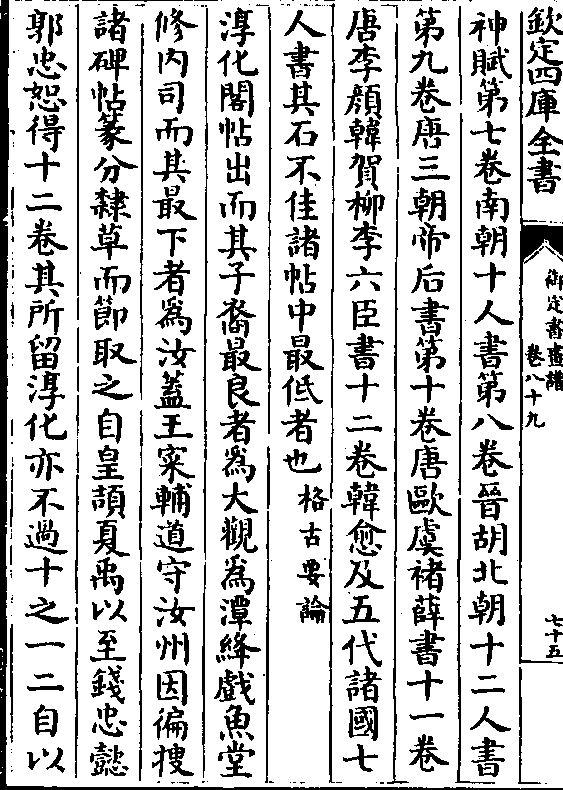 欽定四庫全書
御定書畫譜
卷八十九
七十五
神賦第七卷南朝十人書第八卷晉胡北朝十二人書
第九卷唐三朝帝后書第十卷唐歐虞褚薛書十一卷
唐李顔韓賀柳李六臣書十二卷韓愈及五代諸國七
人書其石不佳諸帖中最低者也格古要論
淳化閣帖出而其子裔最良者爲大觀爲潭絳戲魚堂
修内司而其最下者爲汝蓋王寀輔道守汝州因徧搜
諸碑帖篆分隸草而節取之自皇頡夏禹以至錢忠懿
郭忠恕得十二卷其所留淳化亦不過十之一二自以